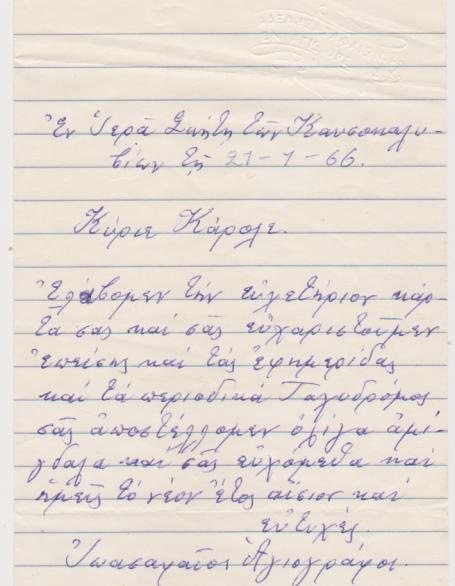 Ἐν Ἱερᾷ Σκήτῃ τῶν Καυσοκαλυ-
βίων τῇ 21-1-66.
Κύριε Κάρολε.
Ἐλάβομεν τήν εὐχετήριον κάρ-
τα σας καί σᾶς εὐχαριστοῦμεν
ἐπείσης καί τάς ἐφημερίδας
καί τά περιοδικά Ταχυδρόμος
σᾶς ἀποστέλλομεν ὀλίγα ἀμί-
γδαλα καί σᾶς εὐχόμεθα καί
ἡμεῖς τό νέον ἔτος αἴσιον καί
εὐτυχές.
Ἰωασαφαῖοι Ἁγιογράφοι.